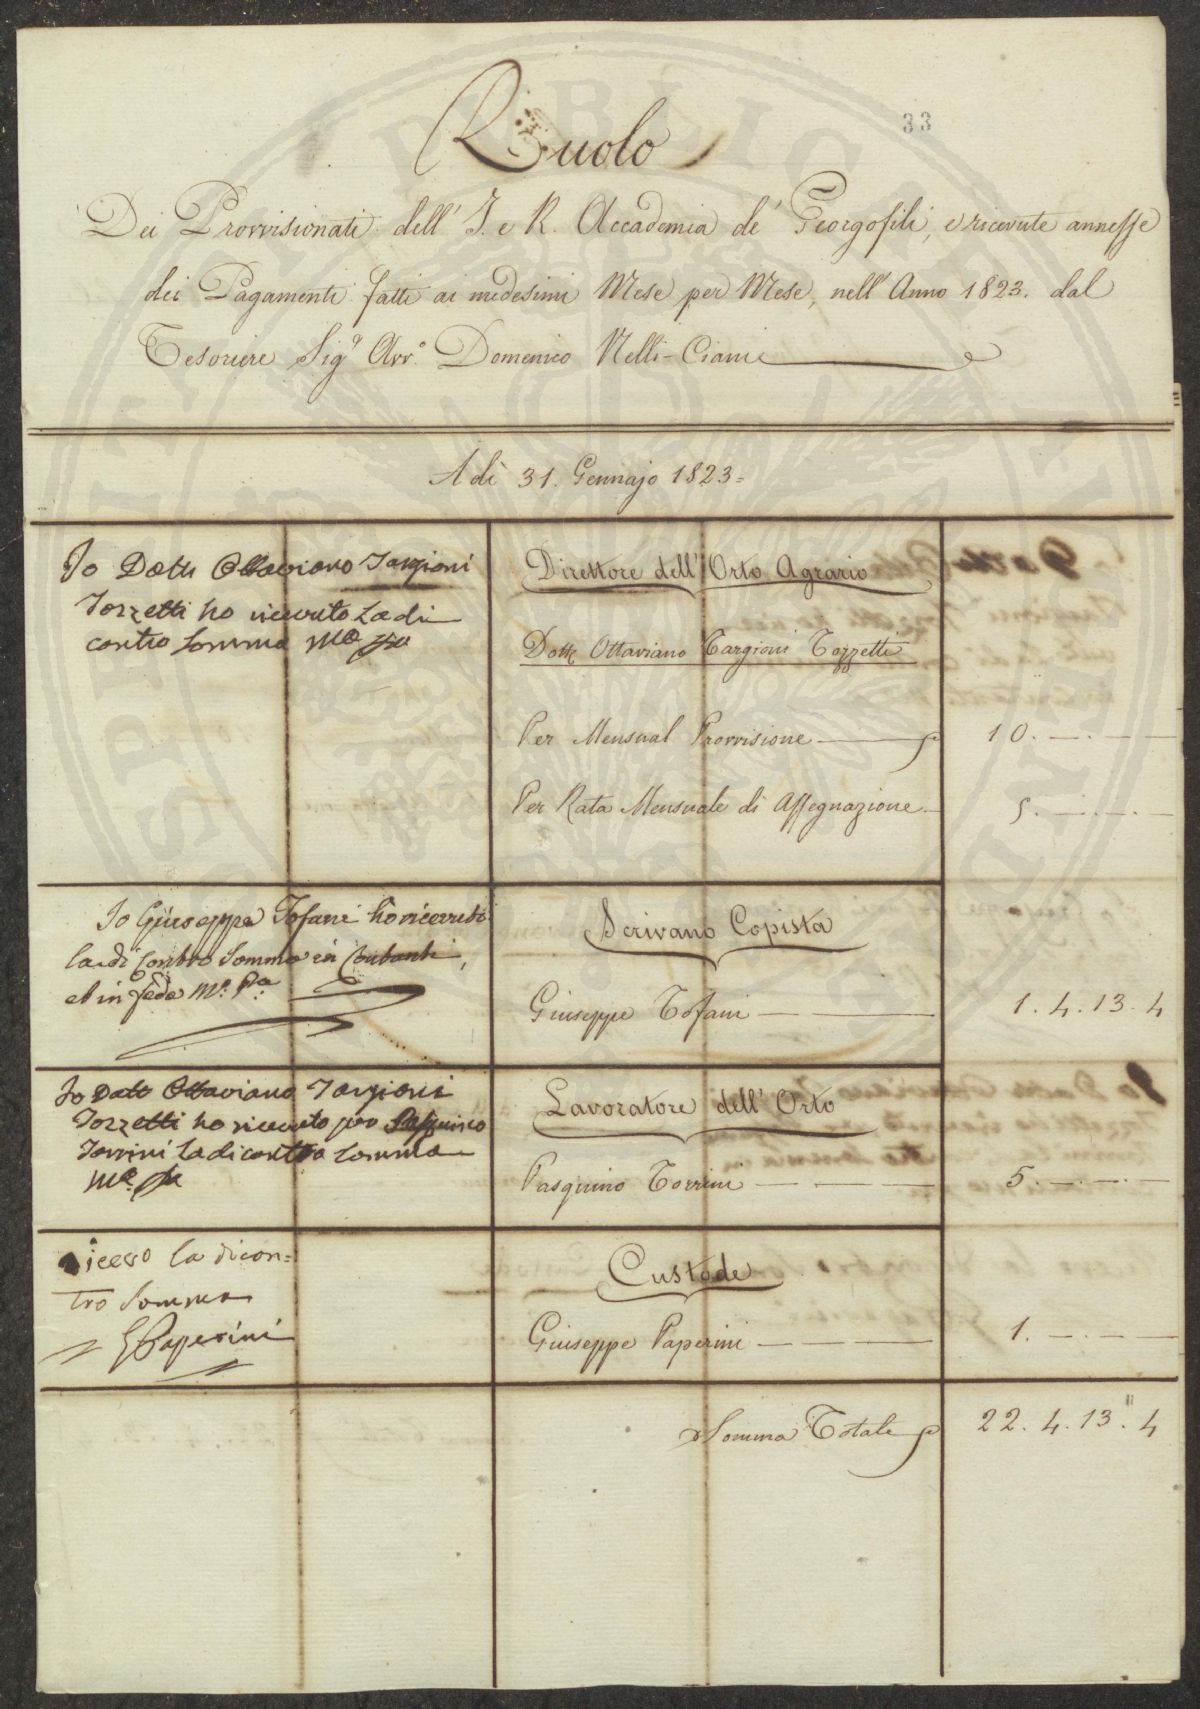 33
Ruolo
Dei Provvisionati dell' I. e R. Accademia de' Georgofili, e ricevute annesse
dei Pagamenti fatti ai medesimi Mese per Mese, nell' Anno 1823. dal
Tesoriere Sig.r Avv.o Domenico Nelli-Ciani
A dì 31. Gennajo 1823=
Io Dott Ottaviano Targioni
Tozzetti ho ricevuto la di
contro somma Mo ppa
Direttore dell' Orto Agrario
Dott Ottaviano Targioni Tozzetti
Per Mensual Provvisione 10. — . — . —
Per Rata Mensuale di Assegnazione 5. — . — . —
Io Giuseppe Tofani ho ricevuto
la di Contro Somma in Contanti,
et in fede M.o P.a
Scrivano Copista
Giuseppe Tofani — — 1. 4. 13. 4
Io Dott Ottaviano Targioni
Tozzetti ho ricevuto per Pasquino
Torrini la di contro somma
Mo. ppa
Lavoratore dell' Orto
Pasquino Torrini — — — 5. — . — . —
Ricevo la dicon=
tro Somma
G Paperini
Custode
Giuseppe Paperini — — — 1. — . — . —
Somma Totale 22. 4. 13. 4